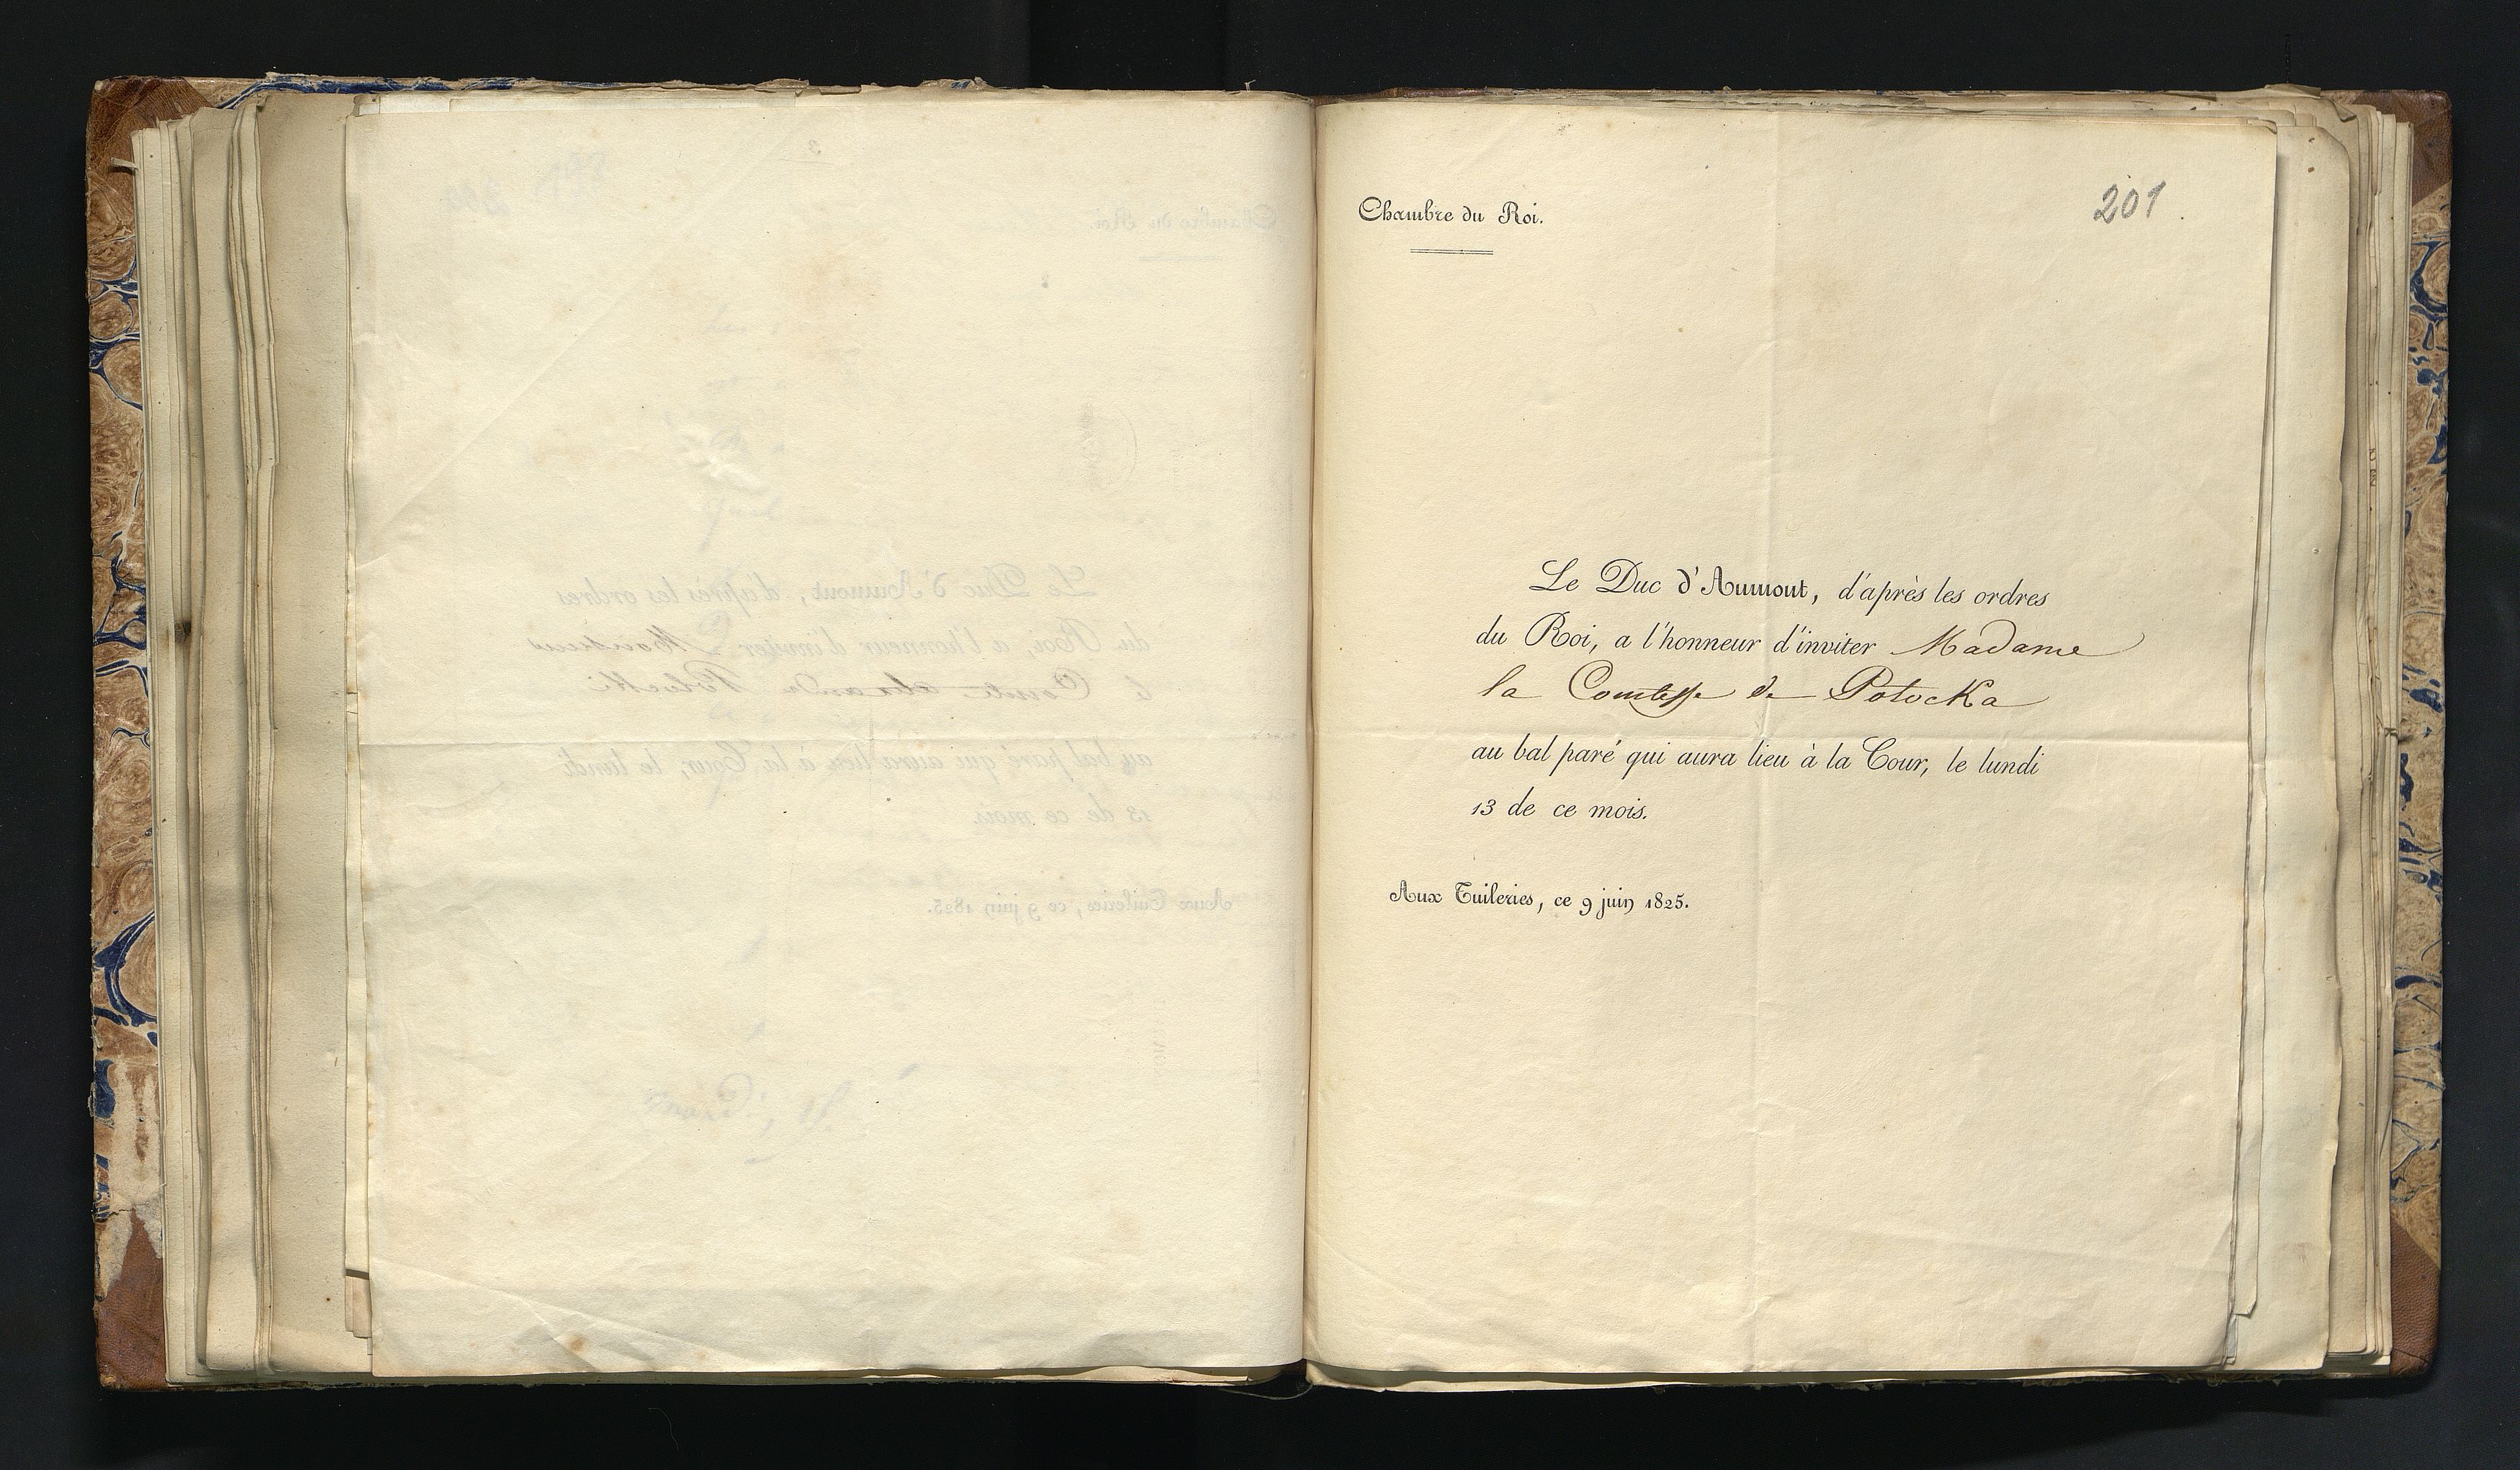 Chambre du Roi.
201
Le Duc d'Aumont, d'après les ordres
du Roi, a l'honneur d'inviter Madame
la Comtesse de Potocka
au bal paré qui aura lieu à la Cour, le lundi
13 de ce mois.
Aux Tuileries, ce 9 juin 1825.